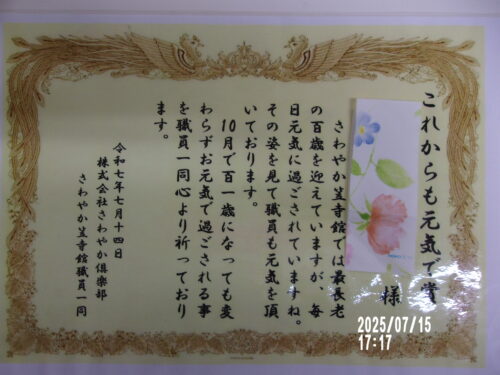 これからも元気で賞
様
さわやか笠寺館では最長老
の百歳を迎えていますが、毎
日元気に過ごされていますね。
その姿を見て職員も元気を頂
いております。
10月で百一歳になっても変
わらずお元気で過ごされる事
を職員一同心より祈っており
ます。
令和七年七月十四日
株式会社さわやか倶楽部
さわやか笠寺館職員一同
2025/07/15
17:17